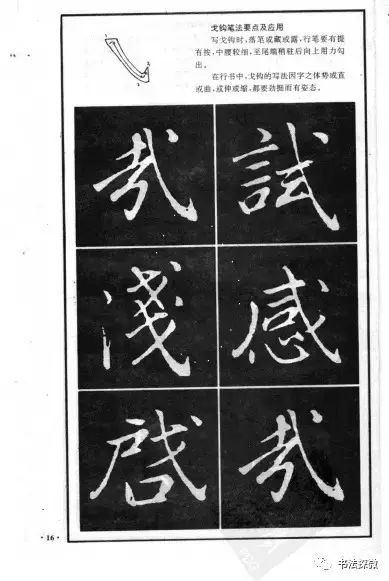 戈钩笔法要点及应用
写戈钩时,落笔或藏或露,行笔要有提
有按,中腰较细,至尾端稍驻后向上用力勾
出。
在行书中,戈钩的写法因字之体势或直
或曲,或伸或缩,都要劲挺而有姿态。
哉 試
淺 感
哉
·16·
书法探教